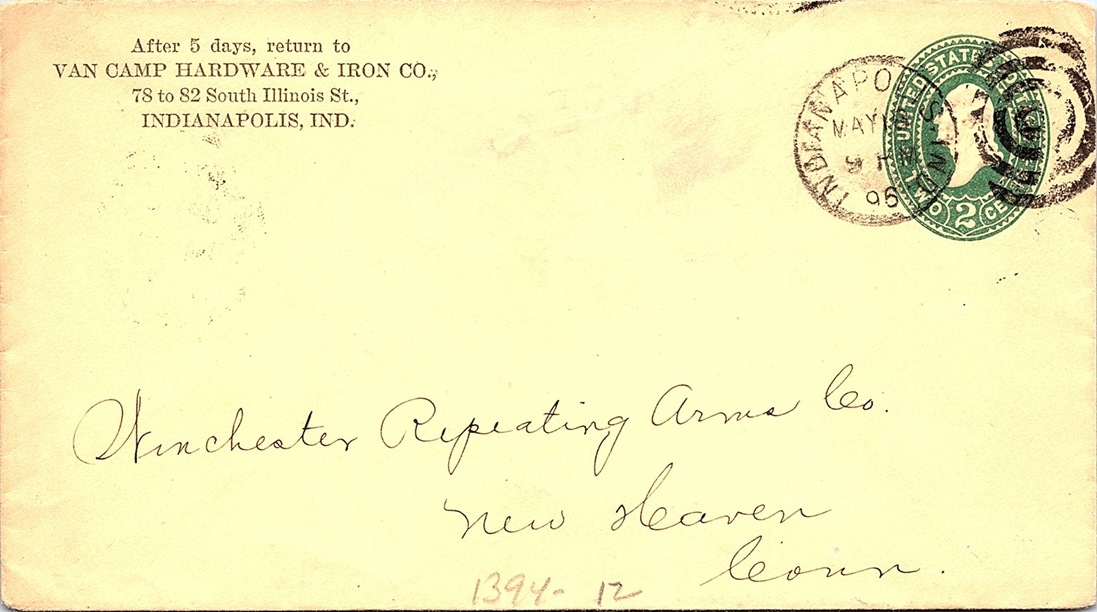 After 5 days, return to
VAN CAMP HARDWARE & IRON CO.,
78 to 82 South Illinois St.,
INDIANAPOLIS, IND.
INDIANAPOLIS, IND.
MAY
96
UNITED STATES
TWO 2 CENTS
Winchester Repeating Arms Co.
New Haven
Conn.
1394-12